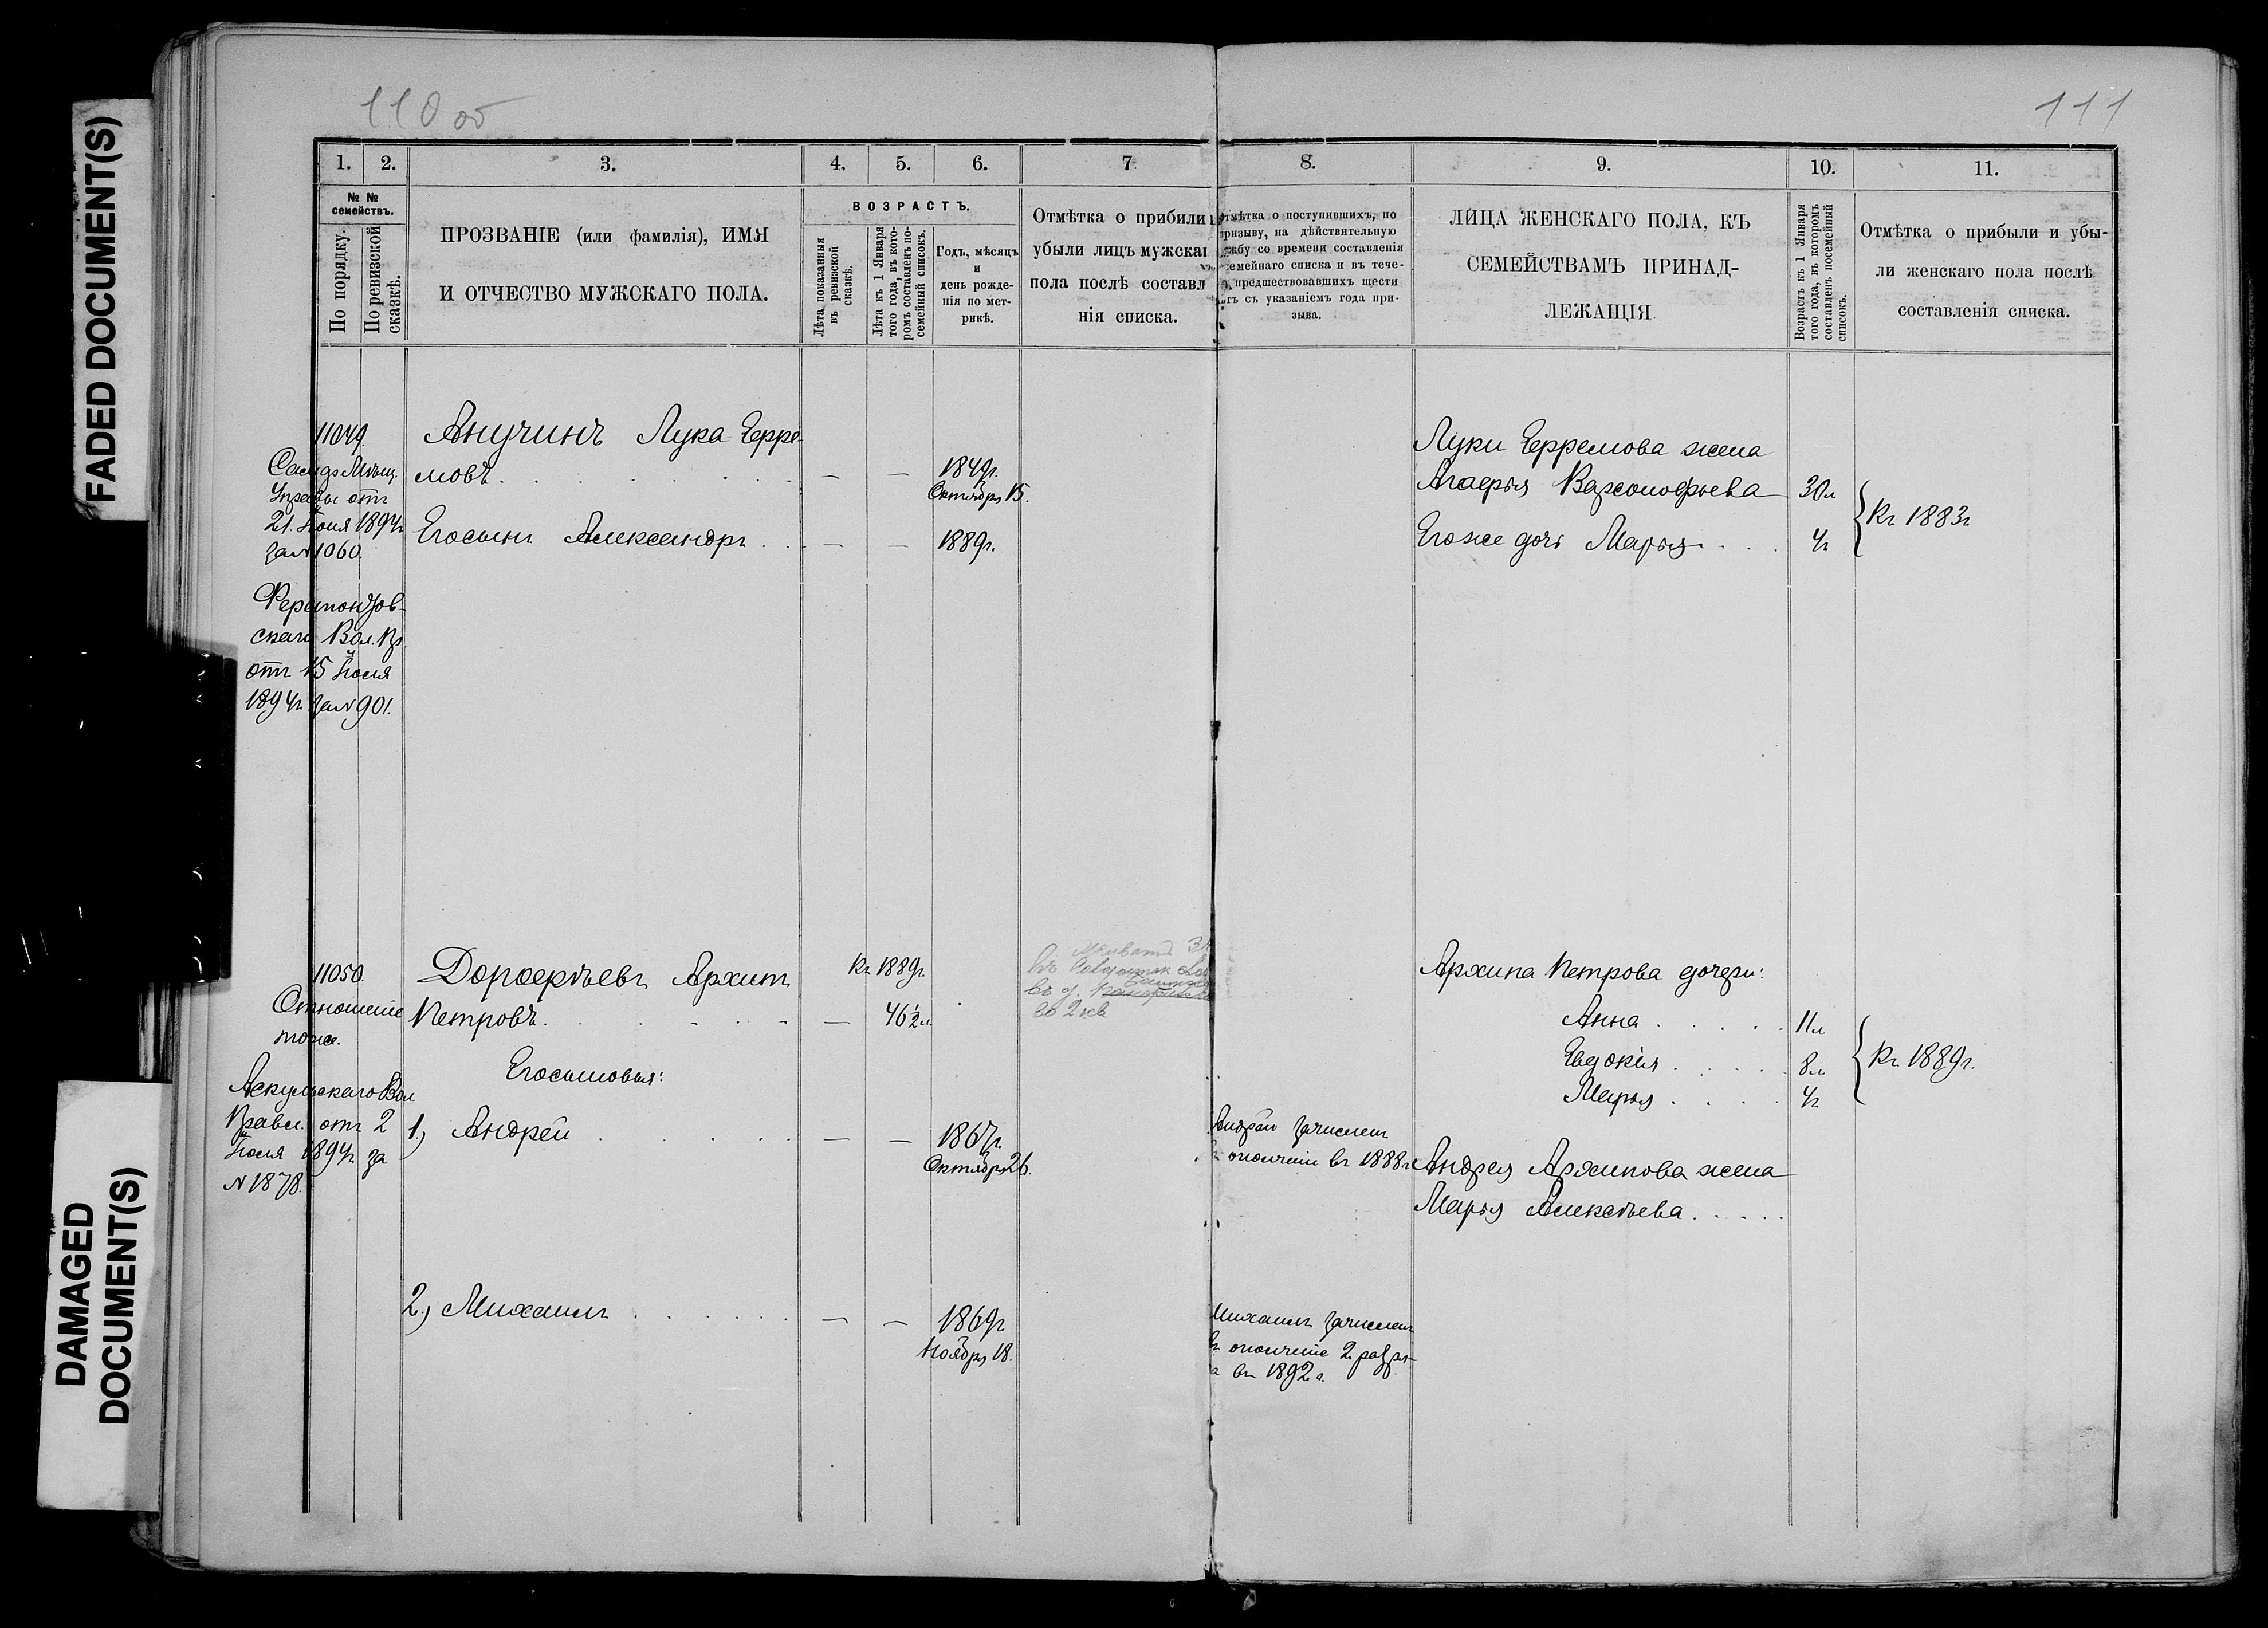 FADED DOCUMENT(S)
DAMAGED
DOCUMENT(S)
110 об
111
1.
2.
3.
4.
5.
6.
7
8.
9.
10.
11.
№ №
семействъ.
По порядку.
По ревизской
сказкѣ.
ПРОЗВАНІЕ (или фамилія), ИМЯ
И ОТЧЕСТВО МУЖСКАГО ПОЛА.
ВОЗРАСТЪ.
Лѣта показанныя
въ ревизской
сказкѣ.
Лѣта къ 1 Января
того года, въ кото-
ромъ составленъ по-
семейный список.
Годъ, мѣсяцъ
и
день рожде-
нія по мет-
рикѣ.
Отмѣтка о прибыли и
убыли лицъ мужскаг
пола послѣ составл
нія списка.
тмѣтка о поступившихъ, по
ризыву, на дѣйствительную
жбу со времени составленія
семейнаго списка и въ тече-
предшествовавшихъ шести
тъ съ указаніемъ года при-
зыва.
ЛИЦА ЖЕНСКАГО ПОЛА, КЪ
СЕМЕЙСТВАМЪ ПРИНАД-
ЛЕЖАЩІЯ.
Возрастъ къ 1 Января
того года, въ которомъ
составленъ посемейный
списокъ.
Отмѣтка о прибыли и убы-
ли женскаго пола послѣ
составленія списка.
11049.
Самар Мѣщ.
Управы отъ
21. Іюня 1894г
за № 1060.
Ферапонтов-
скаго Вол. Пр.
отъ 15 Іюля
1894г. за № 901.
Анучинъ Лука Ефре-
мовъ . . . . . . — —
1849г.
Октября 15.
Его сынъ Александръ . . — — 1889г.
Луки Ефремова жена
Агафья Варсонофьева 30л
Его же дочь Марья . . . 4г
Къ 1883г
11050.
Отношеніе
тоже.
Аскульскаго Вол
Правл. отъ 2
Іюля 1894г. за
№ 1878.
Дорофѣевъ Архипъ
Къ 1889г.
Петровъ . . . . . — 46½л.
Его сыновья:
1.) Андрей . . . . . — — 1867г.
Октября 26.
2.) Михаилъ . . . . . — — 1869г
Ноября 18.
въ д.
во 2 кв
Андрей зачисленъ
ополченіе въ 1888г.
Михаилъ зачисленъ
въ ополченіе 2 разря-
а въ 1892г.
Архипа Петрова дочери:
Анна . . . . . 11л
Евдокія . . . . . 8л
Марья . . . . 4г
Къ 1889г.
Андрея Архипова жена
Марья Алексѣева . . . . .